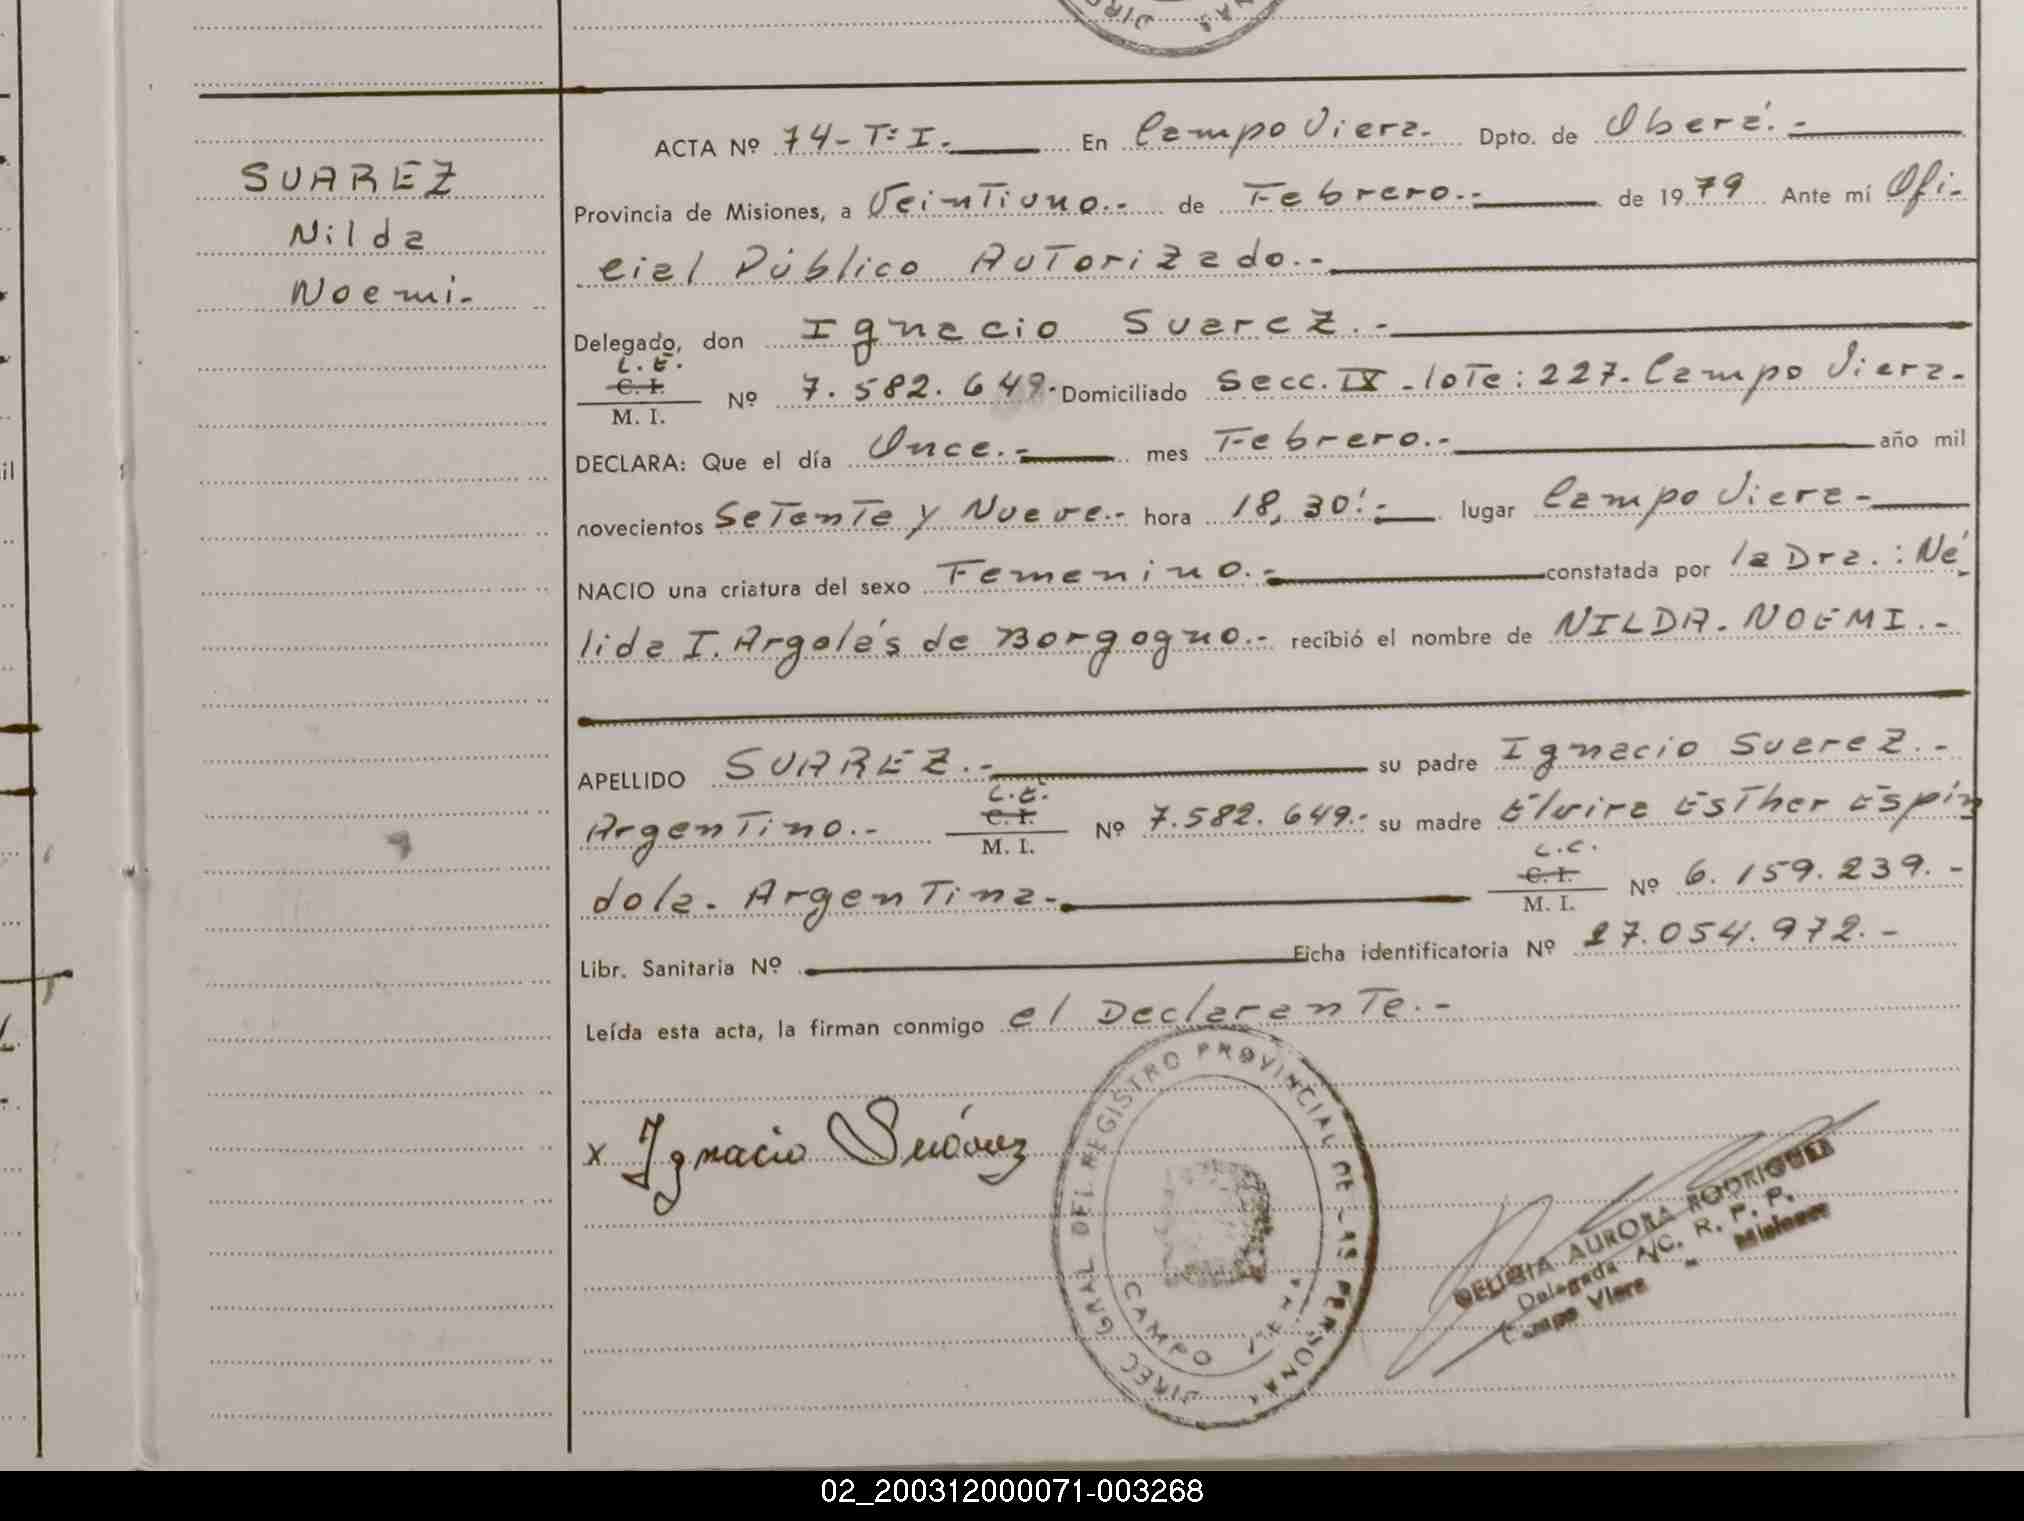 SUAREZ
Nilda
Noemi.-
ACTA Nº 74-Tº I.- En Campo Viera.- Dpto. de Oberá.-
Provincia de Misiones, a Veintiuno.- de Febrero.- de 1979 Ante mí Ofi-
cial Público Autorizado.-
Delegado, don Ignacio Suarez.-
L.E.
C. I.
M. I. Nº 7.582.649.- Domiciliado Secc. IX - lote: 227. Campo Viera.-
DECLARA: Que el día Once.- mes Febrero.- año mil
novecientos Setenta y Nueve.- hora 18,30'.- lugar Campo Viera.-
NACIO una criatura del sexo Femenino.- constatada por la Dra.: Né
lida I. Argolés de Borgogno.- recibió el nombre de NILDA. NOEMI.-
APELLIDO SUAREZ.- su padre Ignacio Suarez.-
L.E.
Argentino.- C. I. M. I. Nº 7.582.649.- su madre Elvira Esther Espín
L.C.
dola. Argentina.- C. I. M. I. Nº 6.159.239.-
Libr. Sanitaria Nº Ficha identificatoria Nº 27.054.972.-
Leída esta acta, la firman conmigo el Declarante.-
x Ignacio Suárez
DIREC GRAL DEL REGISTRO PROVINCIAL DE LAS PERSONAS
CAMPO VIERA
DELIBIA AURORA RODRIGUEZ
Delegada A/C. R. P. P.
Campo Viera - Misiones
02_200312000071-003268